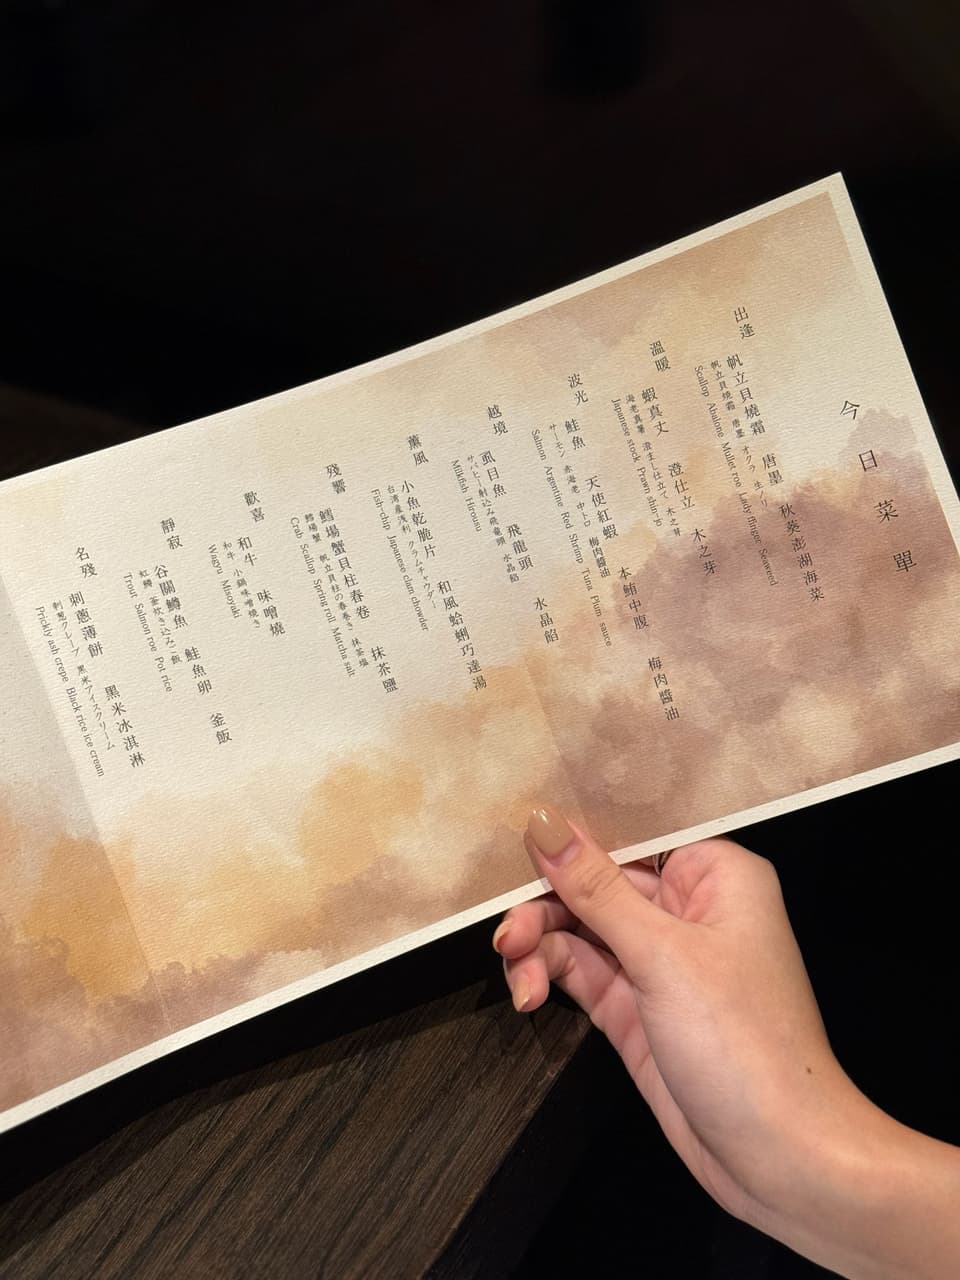 今日菜單
出逢 帆立貝燒霜 唐墨 秋葵澎湖海菜
帆立貝燒霜 唐墨 オクラ 生ノリ
Scallop Abalone Mulet roe Lady finger Seaweed
溫暖 蝦真丈 澄仕立 木之芽
海老真薯 澄まし仕立て 木之芽
Japanese stock Prawn shinjo
波光 鮭魚 天使紅蝦 本鮪中腹 梅肉醬油
サーモン 赤海老 中トロ 梅肉醤油
Salmon Argentine Red Shrimp Tuna Plum sauce
越境 虱目魚 飛龍頭 水晶餡
サバヒー射込み飛竜頭 水晶餡
Milkfish Hirousu
薰風 小魚乾脆片 和風蛤蜊巧達湯
台湾産浅利 クラムチャウダー
Fish-chip Japanese clam chowder
殘響 鱈場蟹貝柱春卷 抹茶鹽
鱈場蟹 帆立貝柱の春巻き 抹茶塩
Crab Scallop Spring roll Matcha salt
歡喜 和牛 味噌燒
和牛 小鍋味噌焼き
Wagyu Misoyaki
靜寂 谷關鱒魚 鮭魚卵 釜飯
虹鱒 釜炊き込みご飯
Trout Salmon roe Pot rice
名殘 刺蔥薄餅 黑米冰淇淋
刺葱クレープ 黒米アイスクリーム
Prickly ash crepe Black rice ice cream